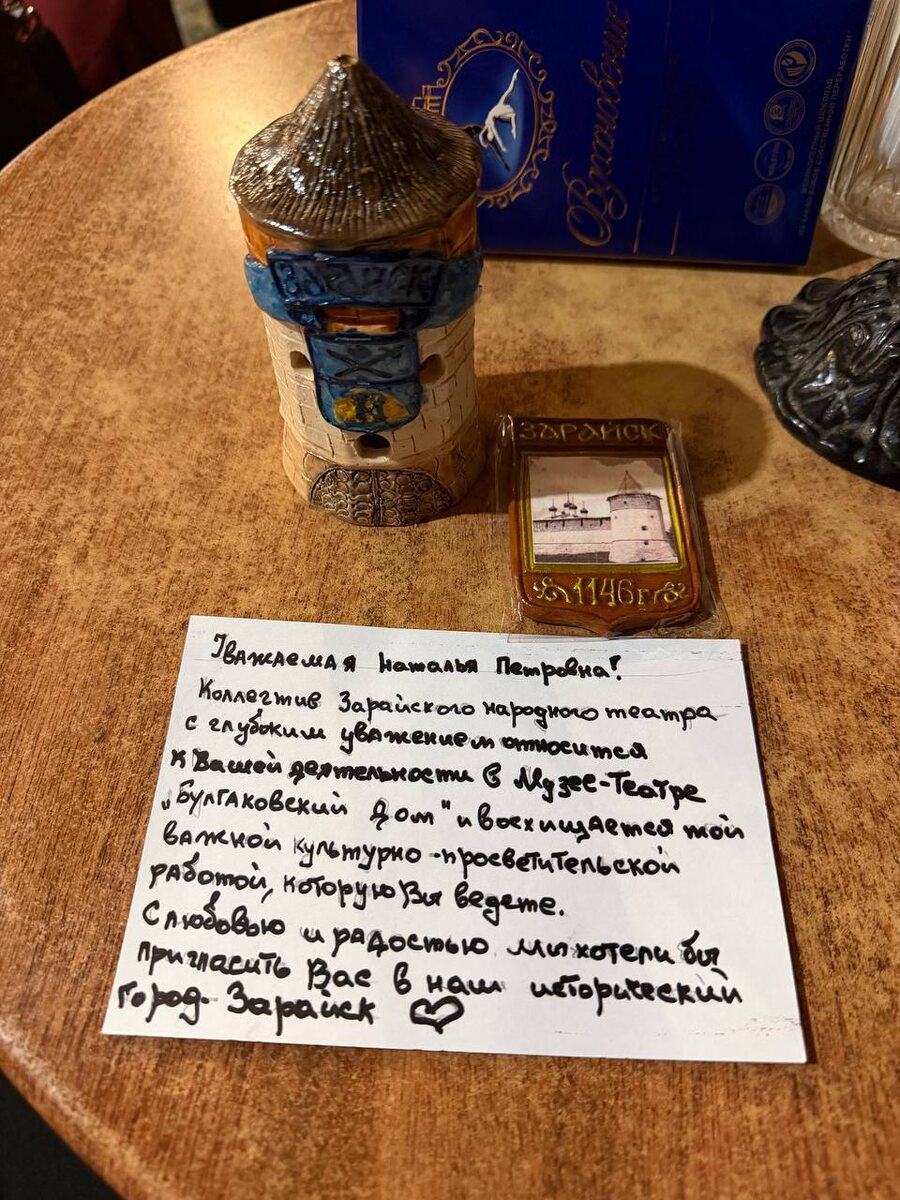 Вдохновение
ЗАРАЙСК
ЗАРАЙСК
1146г.
Уважаемая Наталья Петровна!
Коллектив Зарайского народного театра
с глубоким уважением относится
к Вашей деятельности в Музее-Театре
„Булгаковский Дом" и восхищается той
важной культурно-просветительской
работой, которую Вы ведете.
С любовью и радостью мы хотели бы
пригласить Вас в наш исторический
город- Зарайск